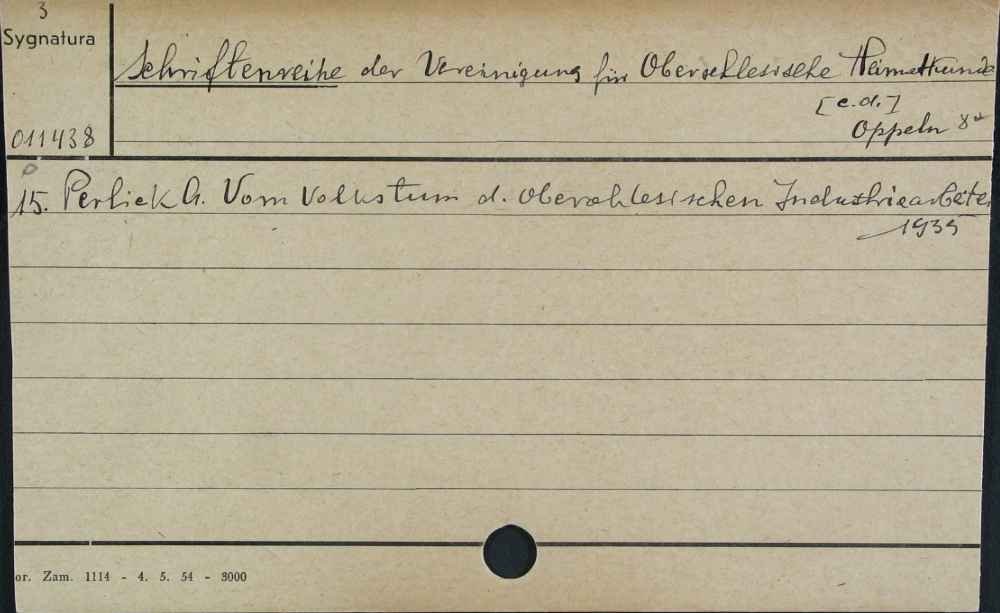 3
Sygnatura
Schriftenreihe der Vereinigung für Oberschlesische Heimatkunde
[c.d.]
011438
Oppeln 8°
15. Perlick A. Vom Volkstum d. Oberschlesischen Industriearbeite
1935
or. Zam. 1114 - 4. 5. 54 - 3000